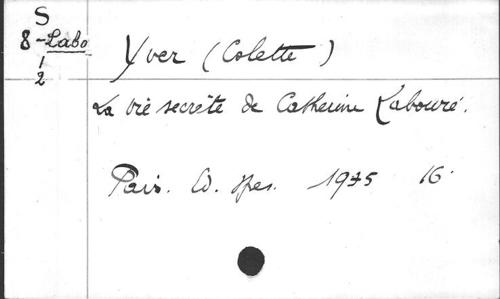 S
8-Labo
1
2
Yver (Colette)
La vie secrète de Catherine Labouré.
Paris. Ed. Spes. 1935 16°